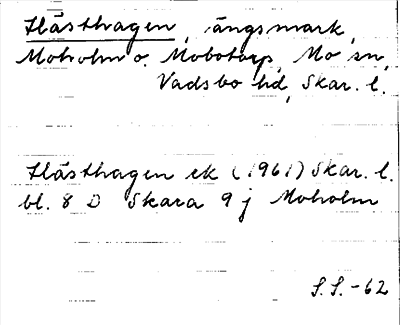 Hästhagen, ängsmark,
Moholm o. Mobotorp, Mo sn,
Vadsbo hd, Skar. l.
Hästhagen ek (1961) Skar. l.
bl. 8 D Skara 9 j Moholm
S.S.-62